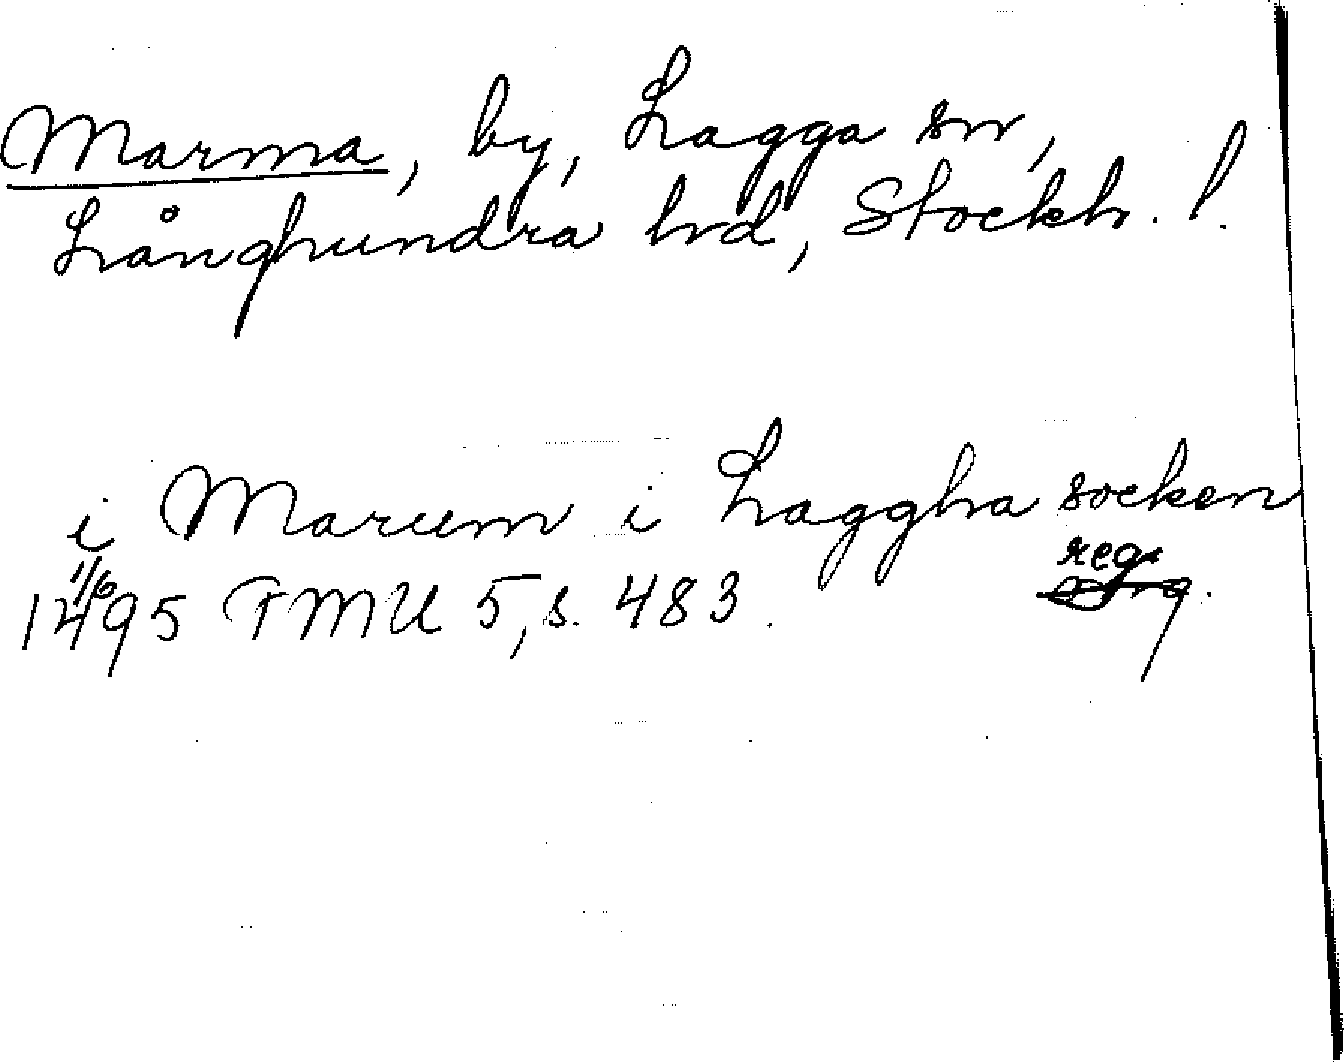 Marma, by, Lagga sn,
Långhundra hd, Stockh. l.
i Marum i Laggha socken
1/6
reg.
1495 FMU 5, s. 483.